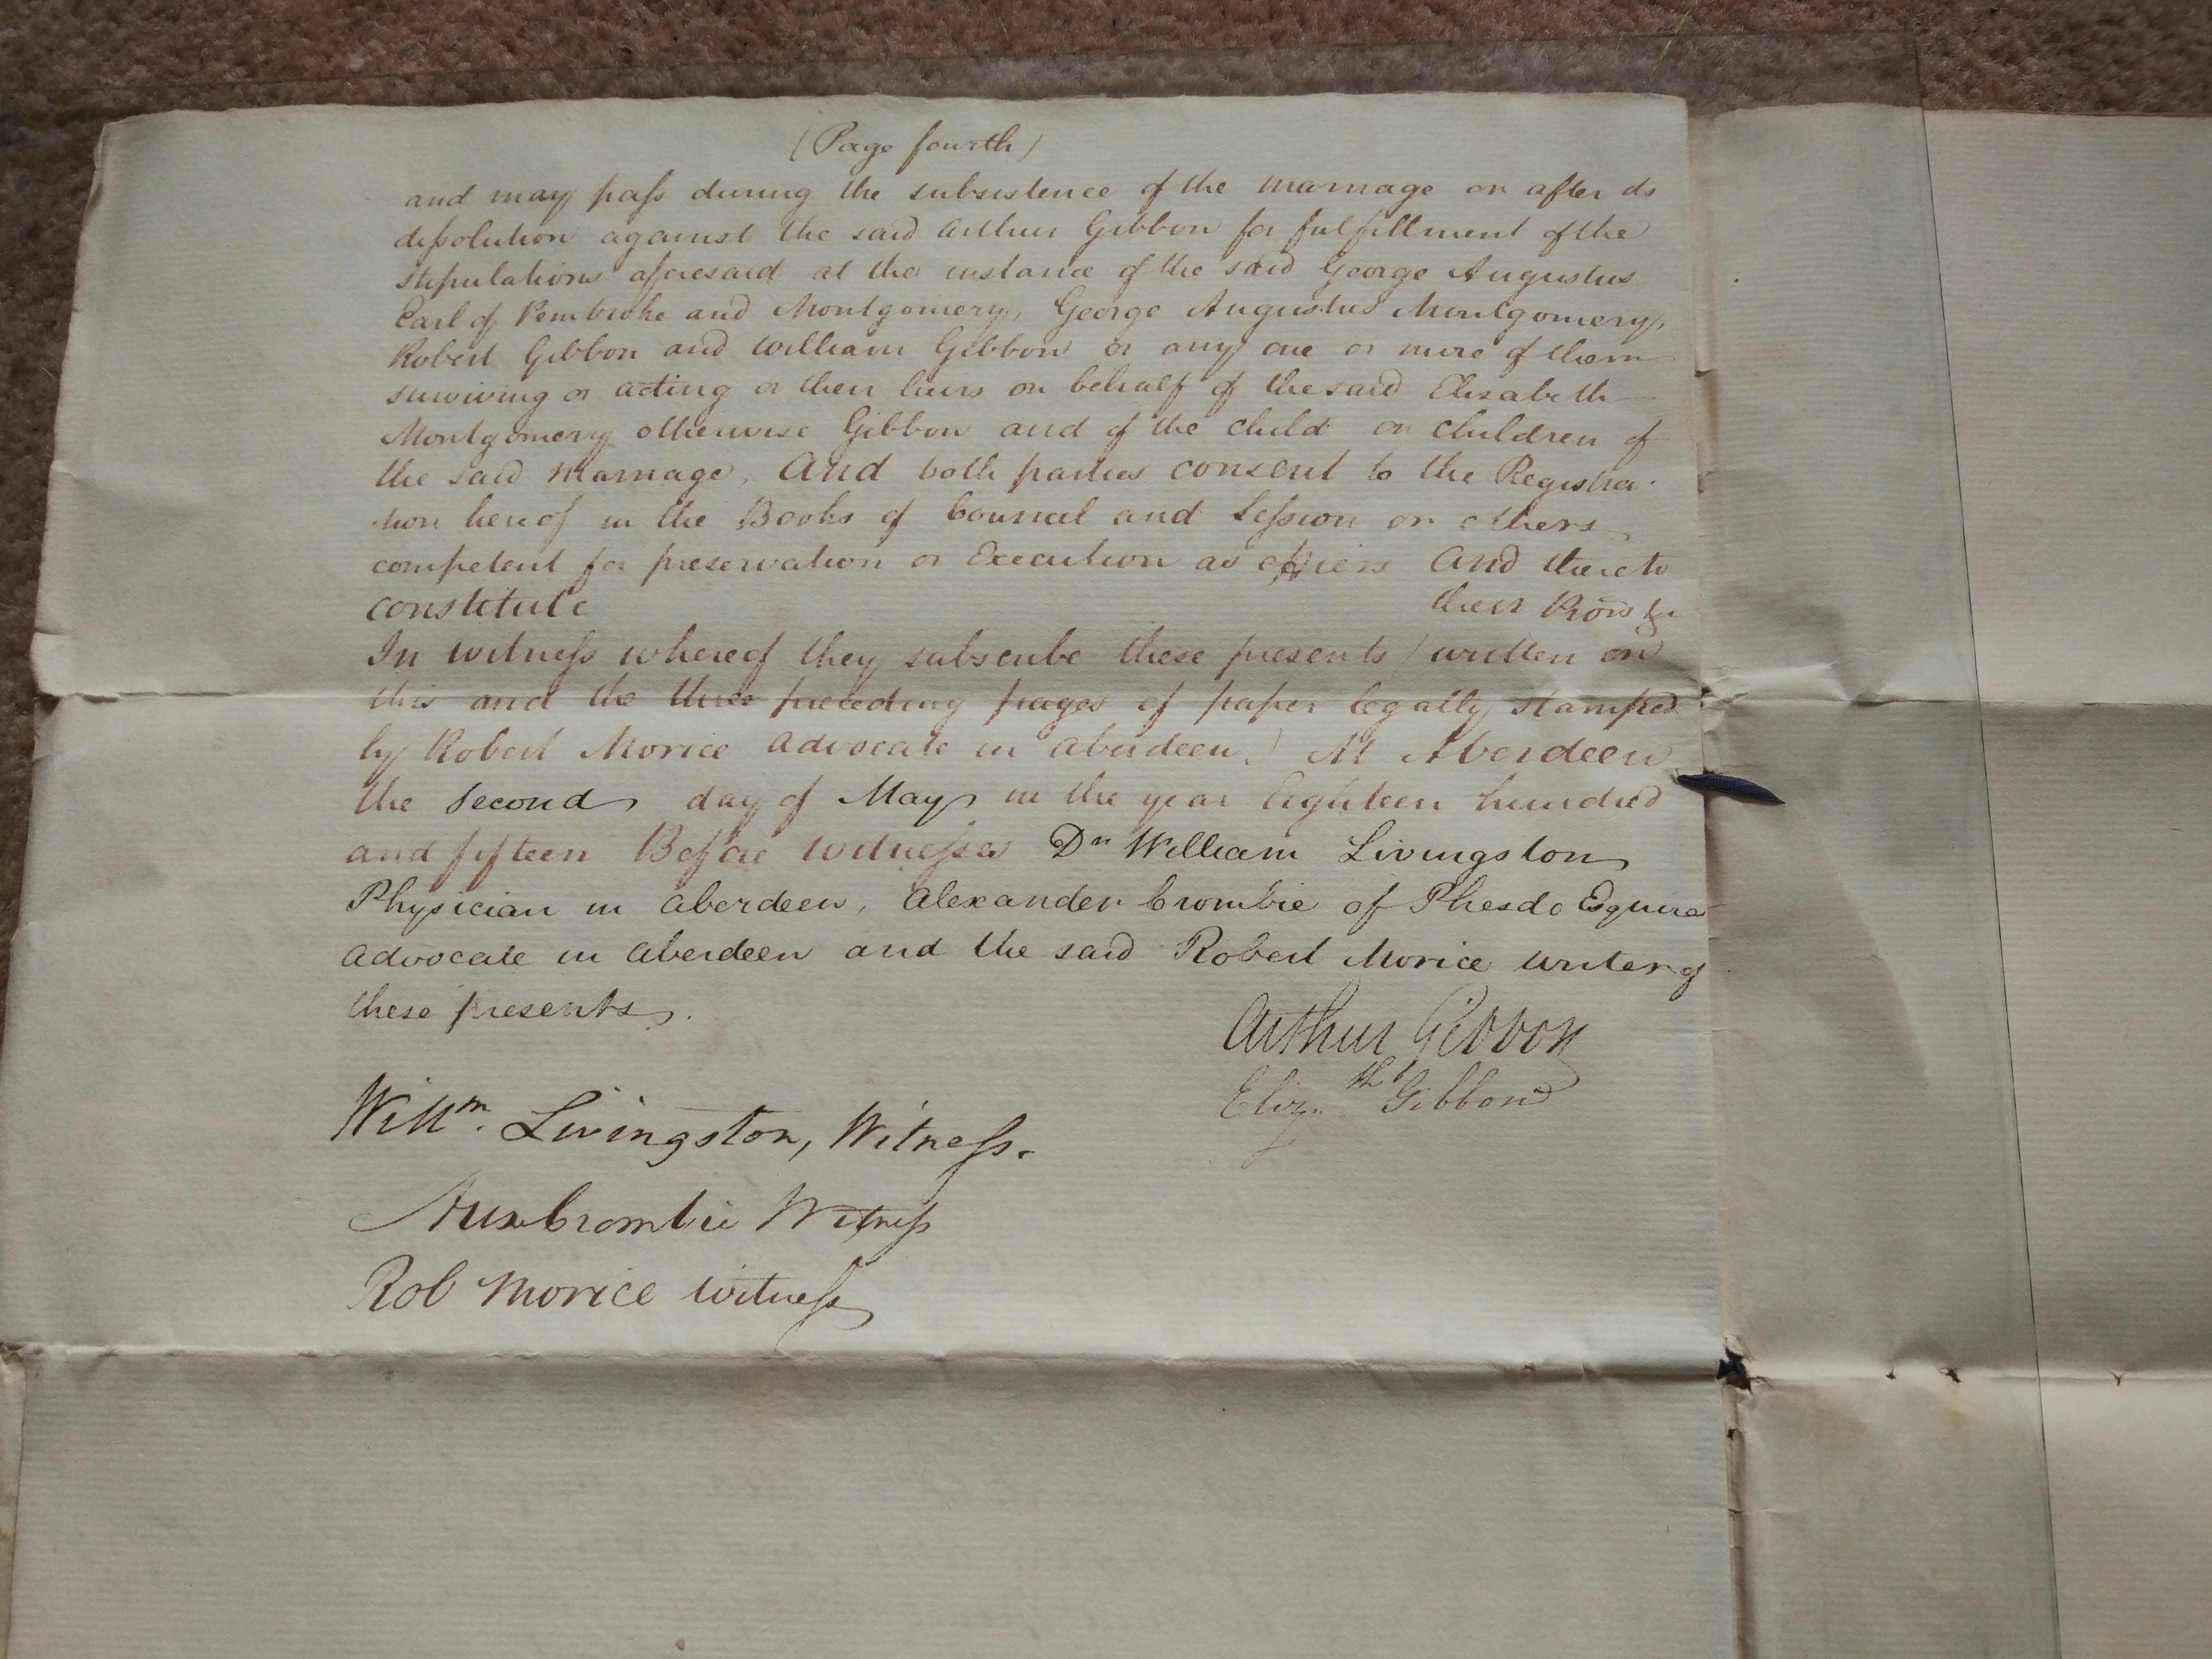 (Page fourth)
and may pass during the subsistence of the marriage or after its
dissolution against the said Arthur Gibbon for fulfillment of the
stipulations aforesaid at the instance of the said George Augustus
Earl of Pembroke and Montgomery, George Augustus Montgomery,
Robert Gibbon and William Gibbon or any one or more of them
surviving or acting or their heirs on behalf of the said Elizabeth
Montgomery otherwise Gibbon and of the child or children of
the said Marriage, And both parties consent to the Registra-
tion hereof in the Books of Council and Session or others
competent for preservation or Execution as effeirs And thereto
constitute their Prors &c
In witness whereof they subscribe these presents (written on
this and the three preceding pages of paper legally stamped
by Robert Morice Advocate in Aberdeen) At Aberdeen
the second day of May in the year Eighteen hundred
and fifteen Before witnesses Dr William Livingston
Physician in Aberdeen, Alexander Crombie of Phesdo Esquire
Advocate in Aberdeen and the said Robert Morice writer of
these presents.
Arthur Gibbon
Elizth Gibbon
Willm. Livingston, Witness.
Alex Crombie Witness
Rob Morice witness